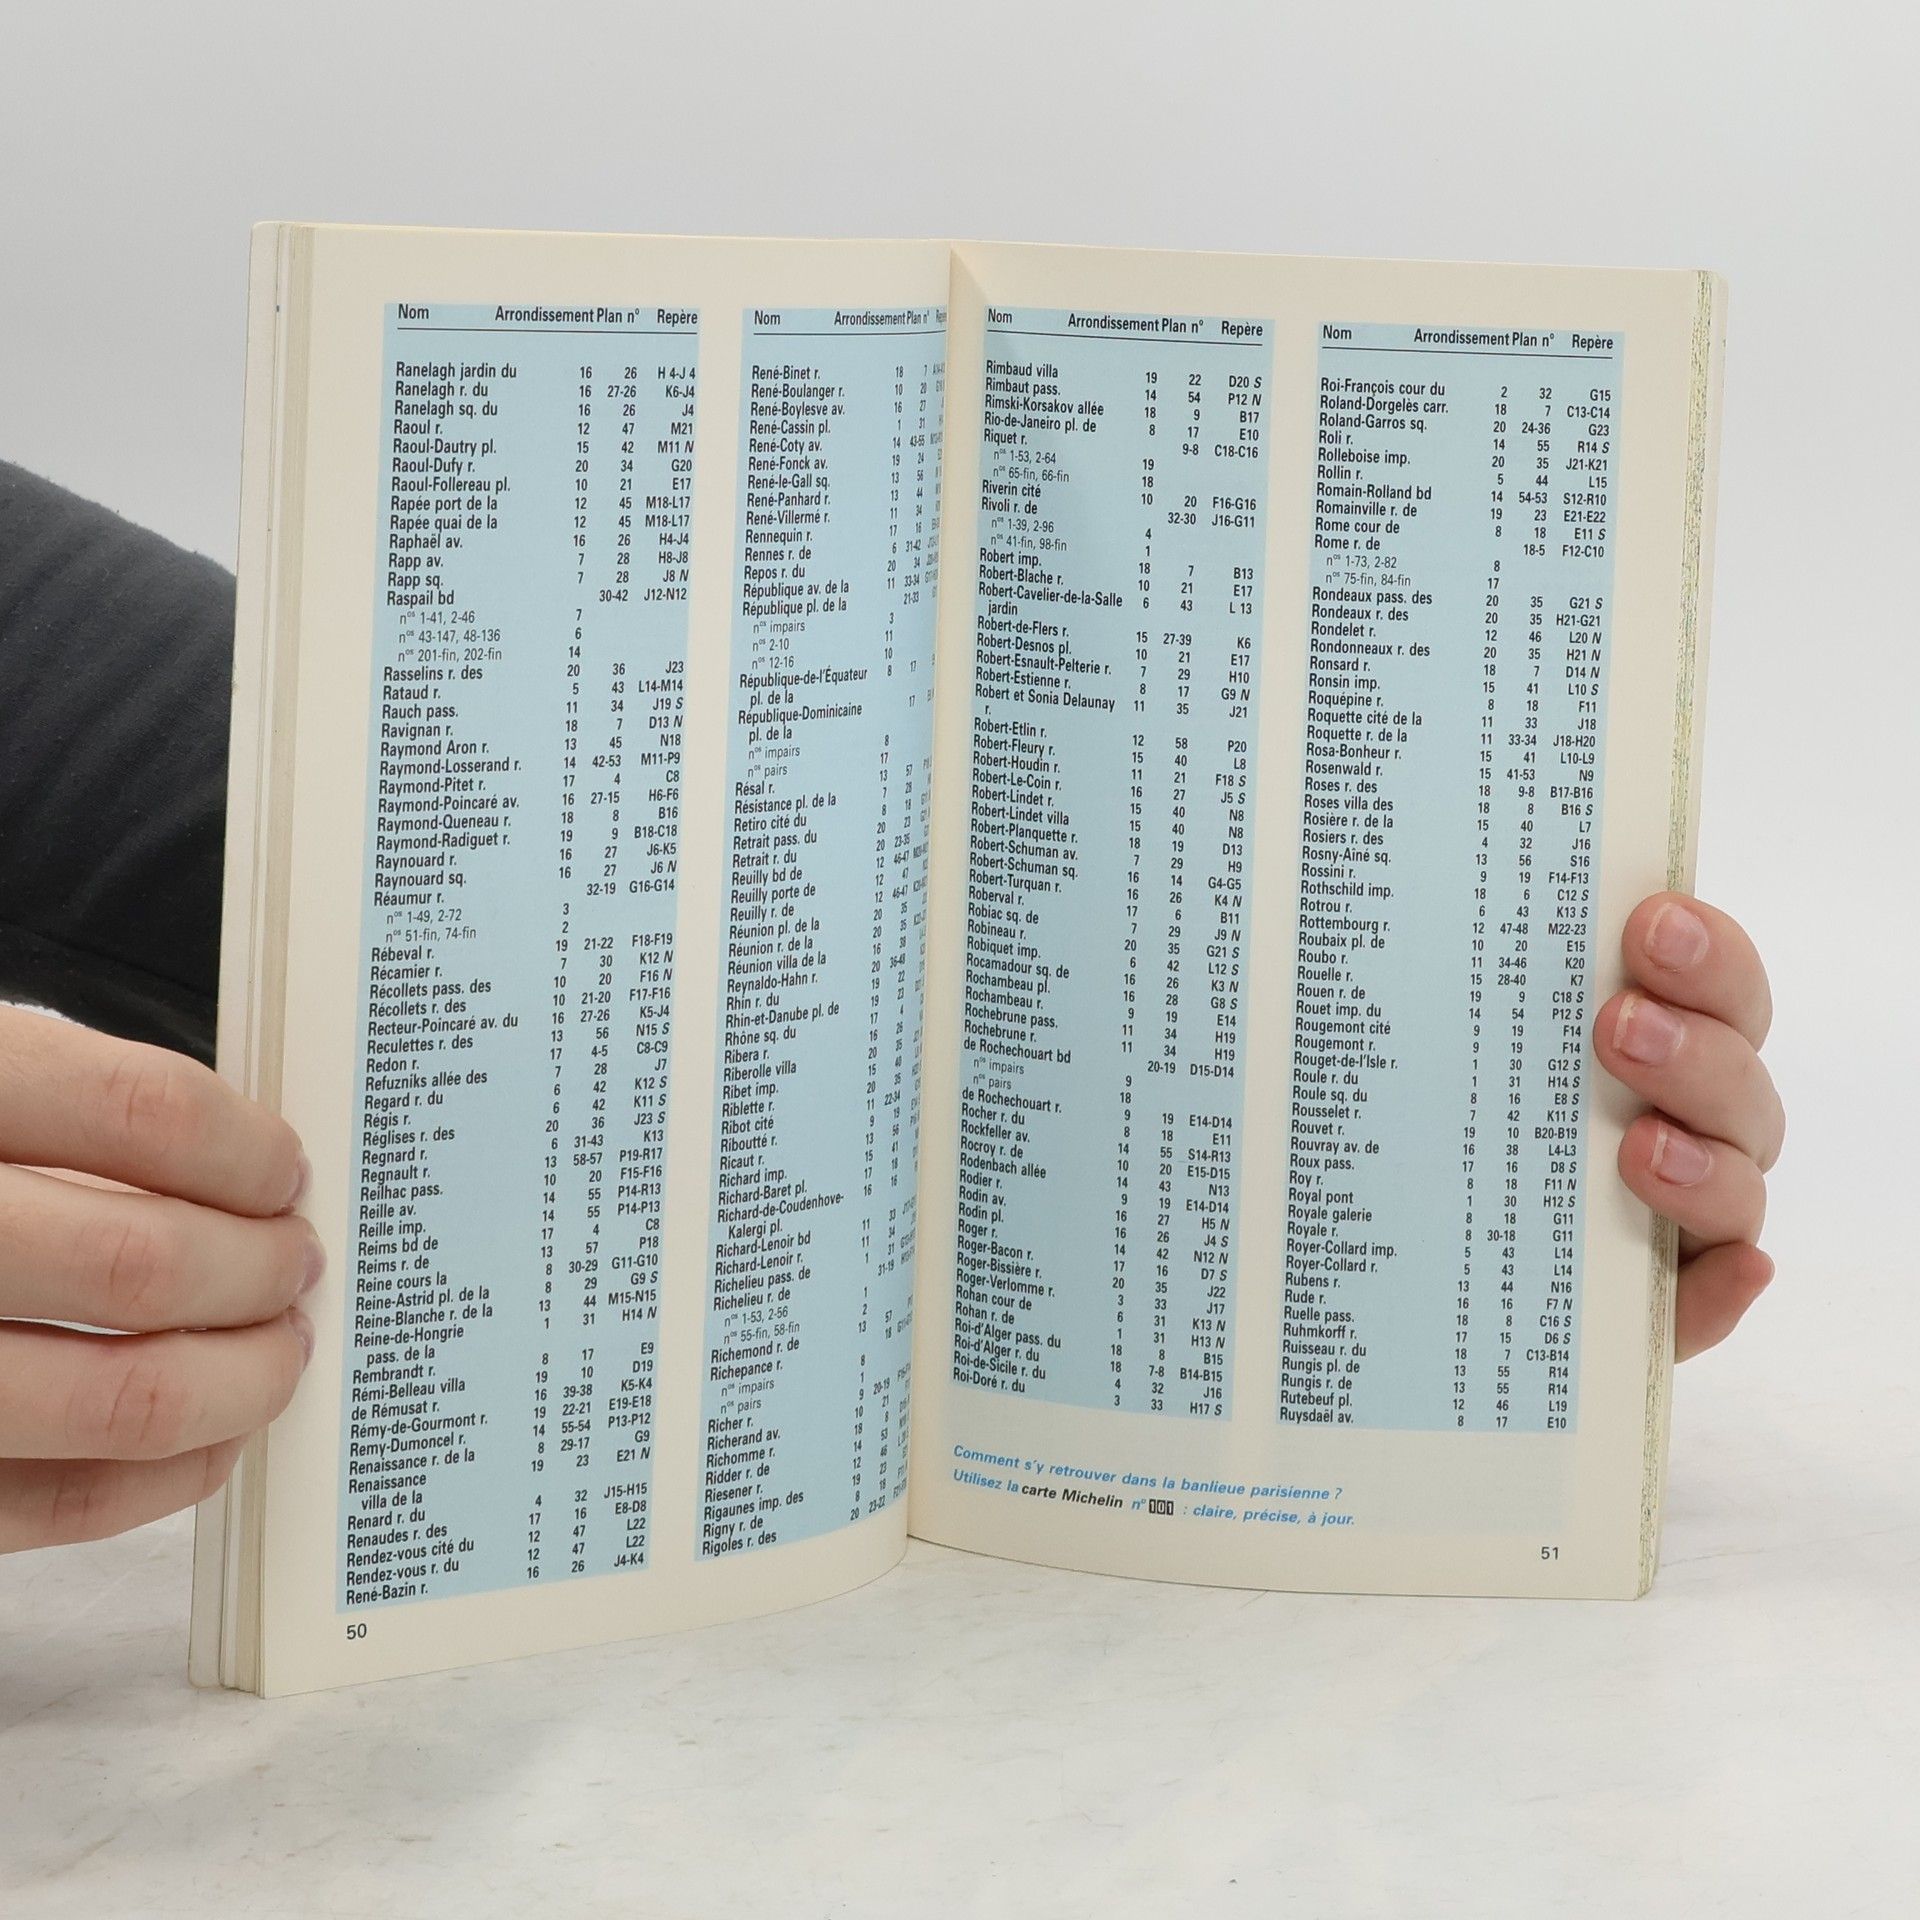 Nom Arrondissement Plan n° Repère
Ranelagh jardin du 16 26 H 4-J 4
Ranelagh r. du 16 27-26 K6-J4
Ranelagh sq. du 16 26 J4
Raoul r. 12 47 M21
Raoul-Dautry pl. 15 42 M11 N
Raoul-Dufy r. 20 34 G20
Raoul-Follereau pl. 10 21 E17
Rapée port de la 12 45 M18-L17
Rapée quai de la 12 45 M18-L17
Raphaël av. 16 26 H4-J4
Rapp av. 7 28 H8-J8
Rapp sq. 7 28 J8 N
Raspail bd 30-42 J12-N12
nos 1-41, 2-46 7
nos 43-147, 48-136 6
nos 201-fin, 202-fin 14
Rasselins r. des 20 36 J23
Rataud r. 5 43 L14-M14
Rauch pass. 11 34 J19 S
Ravignan r. 18 7 D13 N
Raymond Aron r. 13 45 N18
Raymond-Losserand r. 14 42-53 M11-P9
Raymond-Pitet r. 17 4 C8
Raymond-Poincaré av. 16 27-15 H6-F6
Raymond-Queneau r. 18 8 B16
Raymond-Radiguet r. 19 9 B18-C18
Raynouard r. 16 27 J6-K5
Raynouard sq. 16 27 J6 N
Réaumur r. 32-19 G16-G14
nos 1-49, 2-72 3
nos 51-fin, 74-fin 2
Rébeval r. 19 21-22 F18-F19
Récamier r. 7 30 K12 N
Récollets pass. des 10 20 F16 N
Récollets r. des 10 21-20 F17-F16
Recteur-Poincaré av. du 16 27-26 K5-J4
Reculettes r. des 13 56 N15 S
Redon r. 17 4-5 C8-C9
Refuzniks allée des 7 28 J7
Regard r. du 6 42 K12 S
Régis r. 6 42 K11 S
Réglises r. des 20 36 J23 S
Regnard r. 6 31-43 K13
Regnault r. 13 58-57 P19-R17
Reilhac pass. 10 20 F15-F16
Reille av. 14 55 P14-R13
Reille imp. 14 55 P14-P13
Reims bd de 17 4 C8
Reims r. de 13 57 P18
Reine cours la 8 30-29 G11-G10
Reine-Astrid pl. de la 8 29 G9 S
Reine-Blanche r. de la 13 44 M15-N15
Reine-de-Hongrie
pass. de la 1 31 H14 N
Rembrandt r. 8 17 E9
Rémi-Belleau villa 19 10 D19
de Rémusat r. 16 39-38 K5-K4
Rémy-de-Gourmont r. 19 22-21 E19-E18
Remy-Dumoncel r. 14 55-54 P13-P12
Renaissance r. de la 8 29-17 G9
Renaissance
villa de la 19 23 E21 N
Renard r. du 4 32 J15-H15
Renaudes r. des 17 16 E8-D8
Rendez-vous cité du 12 47 L22
Rendez-vous r. du 12 47 L22
René-Bazin r. 16 26 J4-K4
50
Nom Arrondissement Plan n°
René-Binet r. 18 7
René-Boulanger r. 10 20
René-Boylesve av. 16 27
René-Cassin pl. 1 31
René-Coty av. 14 43-55
René-Fonck av. 19 24
René-le-Gall sq. 13 56
René-Panhard r. 13 44
René-Villermé r. 11 34
Rennequin r. 17 16
Rennes r. de 6 31-42
Repos r. du 20 34
République av. de la 11 33-34
République pl. de la 21-33
nos impairs 3
nos 2-10 11
nos 12-16 10
République-de-l'Équateur
pl. de la 8 17
République-Dominicaine
pl. de la 17
nos impairs 8
nos pairs 17
Résal r. 13 57
Résistance pl. de la 7 28
Retiro cité du 8 18
Retrait pass. du 20 23
Retrait r. du 20 23-35
Reuilly bd de 12 46-47
Reuilly porte de 12 47
Reuilly r. de 12 46-47
Réunion pl. de la 20 35
Réunion r. de la 20 35
Réunion villa de la 16 38
Reynaldo-Hahn r. 20 36-48
Rhin r. du 19 22
Rhin-et-Danube pl. de 19 23
Rhône sq. du 17 4
Ribera r. 16 26
Riberolle villa 20 35
Ribet imp. 15 40
Riblette r. 20 35
Ribot cité 11 22-34
Riboutté r. 9 19
Ricaut r. 13 56
Richard imp. 15 41
Richard-Baret pl. 17 18
Richard-de-Coudenhove-
Kalergi pl. 16 16
Richard-Lenoir bd 11 33
Richard-Lenoir r. 11 34
Richelieu pass. de 1 31
Richelieu r. de 31-19
nos 1-53, 2-56 1
nos 55-fin, 58-fin 2
Richemond r. de 13 57
Richepance r. 18
nos impairs 8
nos pairs 1
Richer r. 9 20-19
Richerand av. 10 21
Richomme r. 18 8
Ridder r. de 14 53
Riesener r. 12 46
Rigaunes imp. des 19 23
Rigny r. de 8 18
Rigoles r. des 20 23-22
Nom Arrondissement Plan n° Repère
Rimbaud villa 19 22 D20 S
Rimbaut pass. 14 54 P12 N
Rimski-Korsakov allée 18 9 B17
Rio-de-Janeiro pl. de 8 17 E10
Riquet r. 9-8 C18-C16
nos 1-53, 2-64 19
nos 65-fin, 66-fin 18
Riverin cité 10 20 F16-G16
Rivoli r. de 32-30 J16-G11
nos 1-39, 2-96 4
nos 41-fin, 98-fin 1
Robert imp. 18 7 B13
Robert-Blache r. 10 21 E17
Robert-Cavelier-de-la-Salle
jardin 6 43 L 13
Robert-de-Flers r. 15 27-39 K6
Robert-Desnos pl. 10 21 E17
Robert-Esnault-Pelterie r. 7 29 H10
Robert-Estienne r. 8 17 G9 N
Robert et Sonia Delaunay
r. 11 35 J21
Robert-Etlin r. 12 58 P20
Robert-Fleury r. 15 40 L8
Robert-Houdin r. 11 21 F18 S
Robert-Le-Coin r. 16 27 J5 S
Robert-Lindet r. 15 40 N8
Robert-Lindet villa 15 40 N8
Robert-Planquette r. 18 19 D13
Robert-Schuman av. 7 29 H9
Robert-Schuman sq. 16 14 G4-G5
Robert-Turquan r. 16 26 K4 N
Roberval r. 17 6 B11
Robiac sq. de 7 29 J9 N
Robineau r. 20 35 G21 S
Robiquet imp. 6 42 L12 S
Rocamadour sq. de 16 26 K3 N
Rochambeau pl. 16 28 G8 S
Rochambeau r. 9 19 E14
Rochebrune pass. 11 34 H19
Rochebrune r. 11 34 H19
de Rochechouart bd 20-19 D15-D14
nos impairs 9
nos pairs 18
de Rochechouart r. 9 19 E14-D14
Rocher r. du 8 18 E11
Rockfeller av. 14 55 S14-R13
Rocroy r. de 10 20 E15-D15
Rodenbach allée 14 43 N13
Rodier r. 9 19 E14-D14
Rodin av. 16 27 H5 N
Rodin pl. 16 26 J4 S
Roger r. 14 42 N12 N
Roger-Bacon r. 17 16 D7 S
Roger-Bissière r. 20 35 J22
Roger-Verlomme r. 3 33 J17
Rohan cour de 6 31 K13 N
Rohan r. de 1 31 H13 N
Roi-d'Alger pass. du 18 8 B15
Roi-d'Alger r. du 18 7-8 B14-B15
Roi-de-Sicile r. du 4 32 J16
Roi-Doré r. du 3 33 H17 S
Nom Arrondissement Plan n° Repère
Roi-François cour du 2 32 G15
Roland-Dorgelès carr. 18 7 C13-C14
Roland-Garros sq. 20 24-36 G23
Roli r. 14 55 R14 S
Rolleboise imp. 20 35 J21-K21
Rollin r. 5 44 L15
Romain-Rolland bd 14 54-53 S12-R10
Romainville r. de 19 23 E21-E22
Rome cour de 8 18 E11 S
Rome r. de 18-5 F12-C10
nos 1-73, 2-82 8
nos 75-fin, 84-fin 17
Rondeaux pass. des 20 35 G21 S
Rondeaux r. des 20 35 H21-G21
Rondelet r. 12 46 L20 N
Rondonneaux r. des 20 35 H21 N
Ronsard r. 18 7 D14 N
Ronsin imp. 15 41 L10 S
Roquépine r. 8 18 F11
Roquette cité de la 11 33 J18
Roquette r. de la 11 33-34 J18-H20
Rosa-Bonheur r. 15 41 L10-L9
Rosenwald r. 15 41-53 N9
Roses r. des 18 9-8 B17-B16
Roses villa des 18 8 B16 S
Rosière r. de la 15 40 L7
Rosiers r. des 4 32 J16
Rosny-Aîné sq. 13 56 S16
Rossini r. 9 19 F14-F13
Rothschild imp. 18 6 C12 S
Rotrou r. 6 43 K13 S
Rottembourg r. 12 47-48 M22-23
Roubaix pl. de 10 20 E15
Roubo r. 11 34-46 K20
Rouelle r. 15 28-40 K7
Rouen r. de 19 9 C18 S
Rouet imp. du 14 54 P12 S
Rougemont cité 9 19 F14
Rougemont r. 9 19 F14
Rouget-de-l'Isle r. 1 30 G12 S
Roule r. du 1 31 H14 S
Roule sq. du 8 16 E8 S
Rousselet r. 7 42 K11 S
Rouvet r. 19 10 B20-B19
Rouvray av. de 16 38 L4-L3
Roux pass. 17 16 D8 S
Roy r. 8 18 F11 N
Royal pont 1 30 H12 S
Royale galerie 8 18 G11
Royale r. 8 30-18 G11
Royer-Collard imp. 5 43 L14
Royer-Collard r. 5 43 L14
Rubens r. 13 44 N16
Rude r. 16 16 F7 N
Ruelle pass. 18 8 C16 S
Ruhmkorff r. 17 15 D6 S
Ruisseau r. du 18 7 C13-B14
Rungis pl. de 13 55 R14
Rungis r. de 13 55 R14
Rutebeuf pl. 12 46 L19
Ruysdaël av. 8 17 E10
Comment s'y retrouver dans la banlieue parisienne ?
Utilisez la carte Michelin n° 101 : claire, précise, à jour.
51